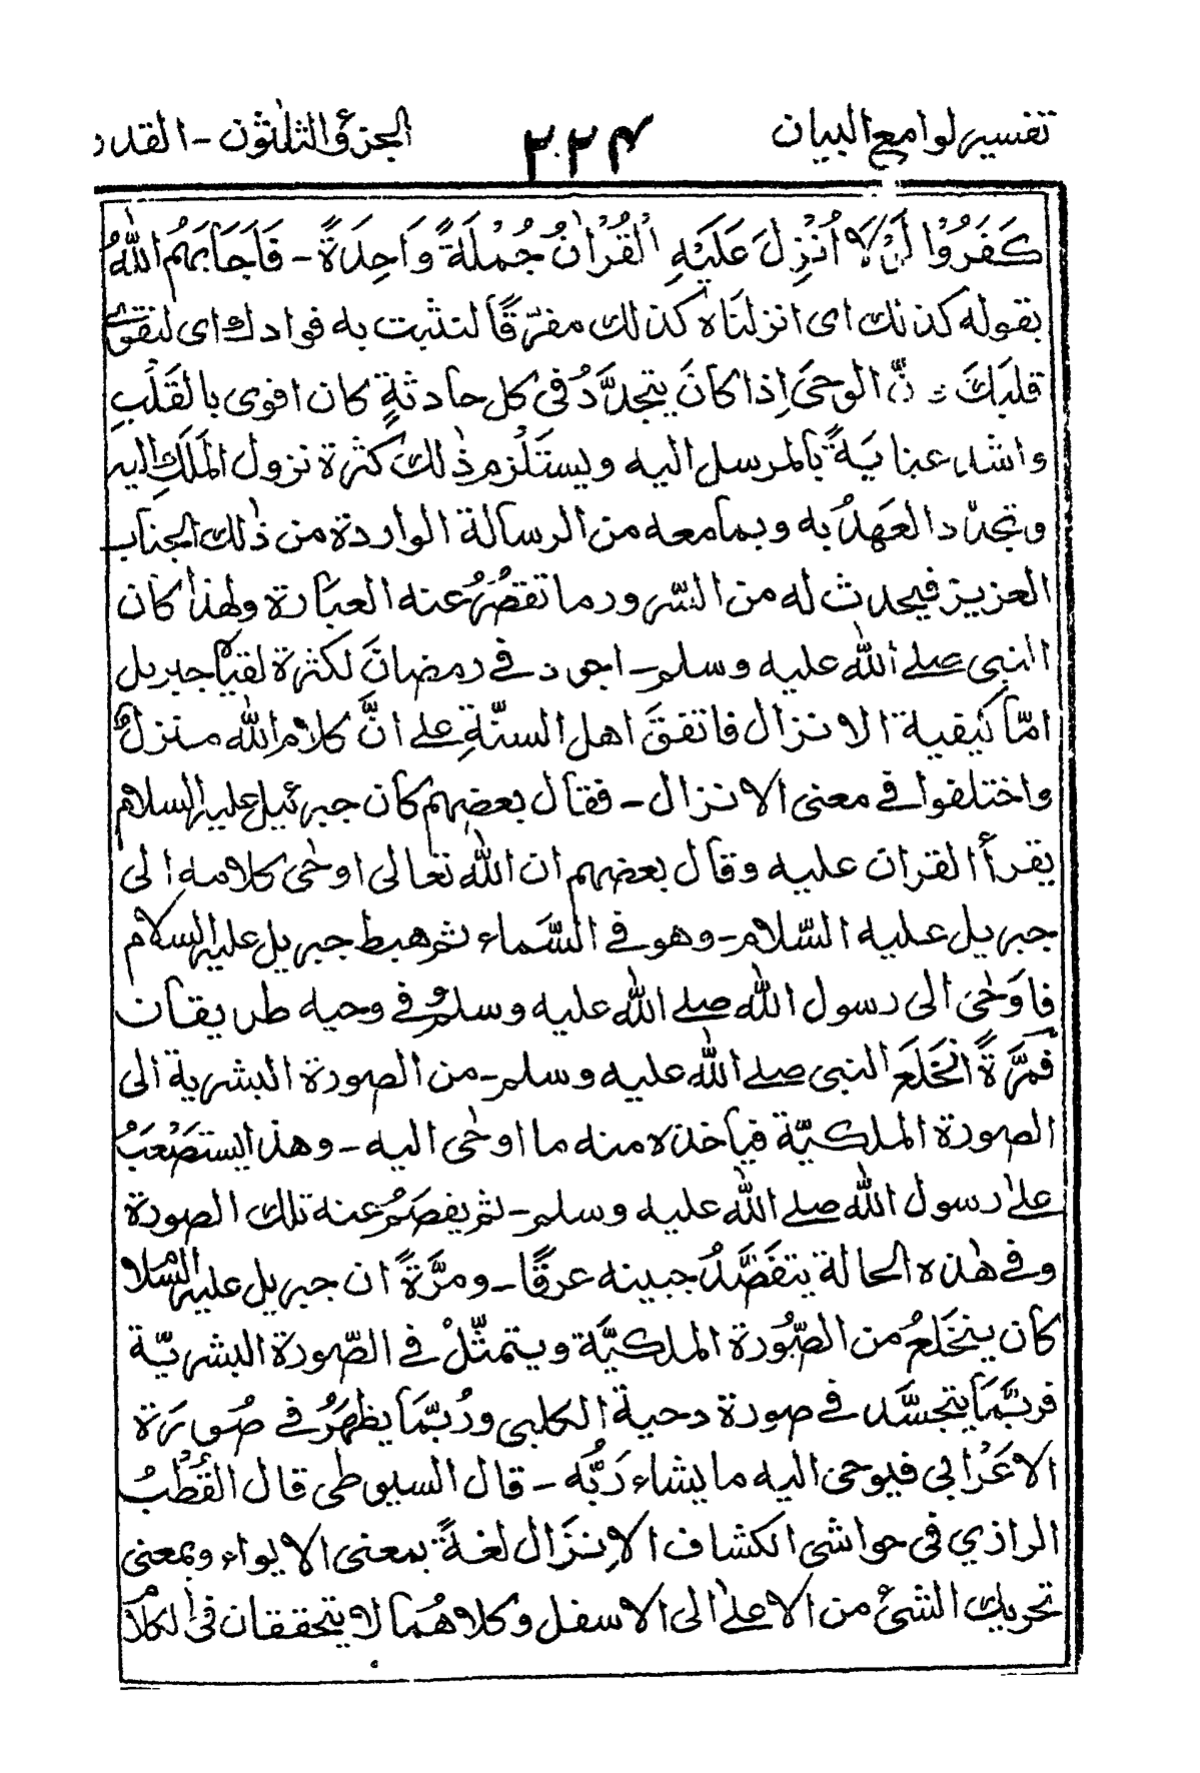 تفسير لوامع البيان ٢٢٤ الجزء الثلثون - القدر
كَفَرُوْا لَوْلَا اُنْزِلَ عَلَيْهِ الْقُرْاٰنُ جُمْلَةً وَاحِدَةً - فَاَجَابَهُمُ اللّٰهُ
بقوله كذلك اى انزلنَاه كذلك مفرّقًا لنثبت به فوادك اى لنقوى
قلبَكَ نَّ الوحىَ اِذا كانَ يتجدَّدُ فى كل حادثةٍ كان اقوى بالقَلْبِ
واشد عنايَةً بالمرسل اليه ويستَلْزم ذٰلك كثرة نزول المَلَكِ اليه
وتجدّد العَهدُ به وبما معه من الرسالة الواردة من ذٰلك الجناب
العزيز فيحدث له من السّرور ما تقصُرُ عنه العبَارة ولهٰذا كان
النبى صلے اللّٰه عليه وسلم - اجود فى رمضانَ لكثرة لقيا جبريل
امّا كيفية الانزال فاتفقَ اهل السنّةِ علے انَّ كلام اللّٰه منزلٌ
واختلفوا فى معنى الانزال - فقال بعضهم كان جبرئيل عليه السلام
يقرأ القران عليه وقال بعضهم ان اللّٰه تعالى اوحٰى كلامه الى
جبريل عليه السّلام - وهو فى السَّماء ثم هبط جبريل عليه السلام
فاوَحٰى الى رسول اللّٰه صلے اللّٰه عليه وسلم و فى وحيه طريقان
فمَرَّةً انْخَلَعَ النبى صلے اللّٰه عليه وسلم - من الصورة البشرية الى
الصورة الملكيّة فياخذه منه ما اوحٰى اليه - وهذا يستصْعَبُ
علٰے رسول اللّٰه صلے اللّٰه عليه وسلم - ثم يفصَمُ عنه تلك الصورة
وفى هٰذه الحالة يتفَصَّدُ جبينه عرقًا - ومرَّةً ان جبريل عليه السّلام
كان ينخَلعُ من الصّورة الملكيَّة ويتمثّلُ فى الصّورة البشريّة
فربّمَا يتجسَّد فى صورة دحية الكلبى ورُبّمَا يظهَرُ فى صُورَة
الاعْرابى فيوحى اليه ما يشاء رَبُّه - قال السيوطى قال القُطْبُ
الرازي فى حواشى الكشاف الاِنزَال لغةً بمعنى الايواء وبمعنى
تحريك الشئ من الاعلٰے الى الاسفل وكلاهُما لا يتحققان فى الكلام